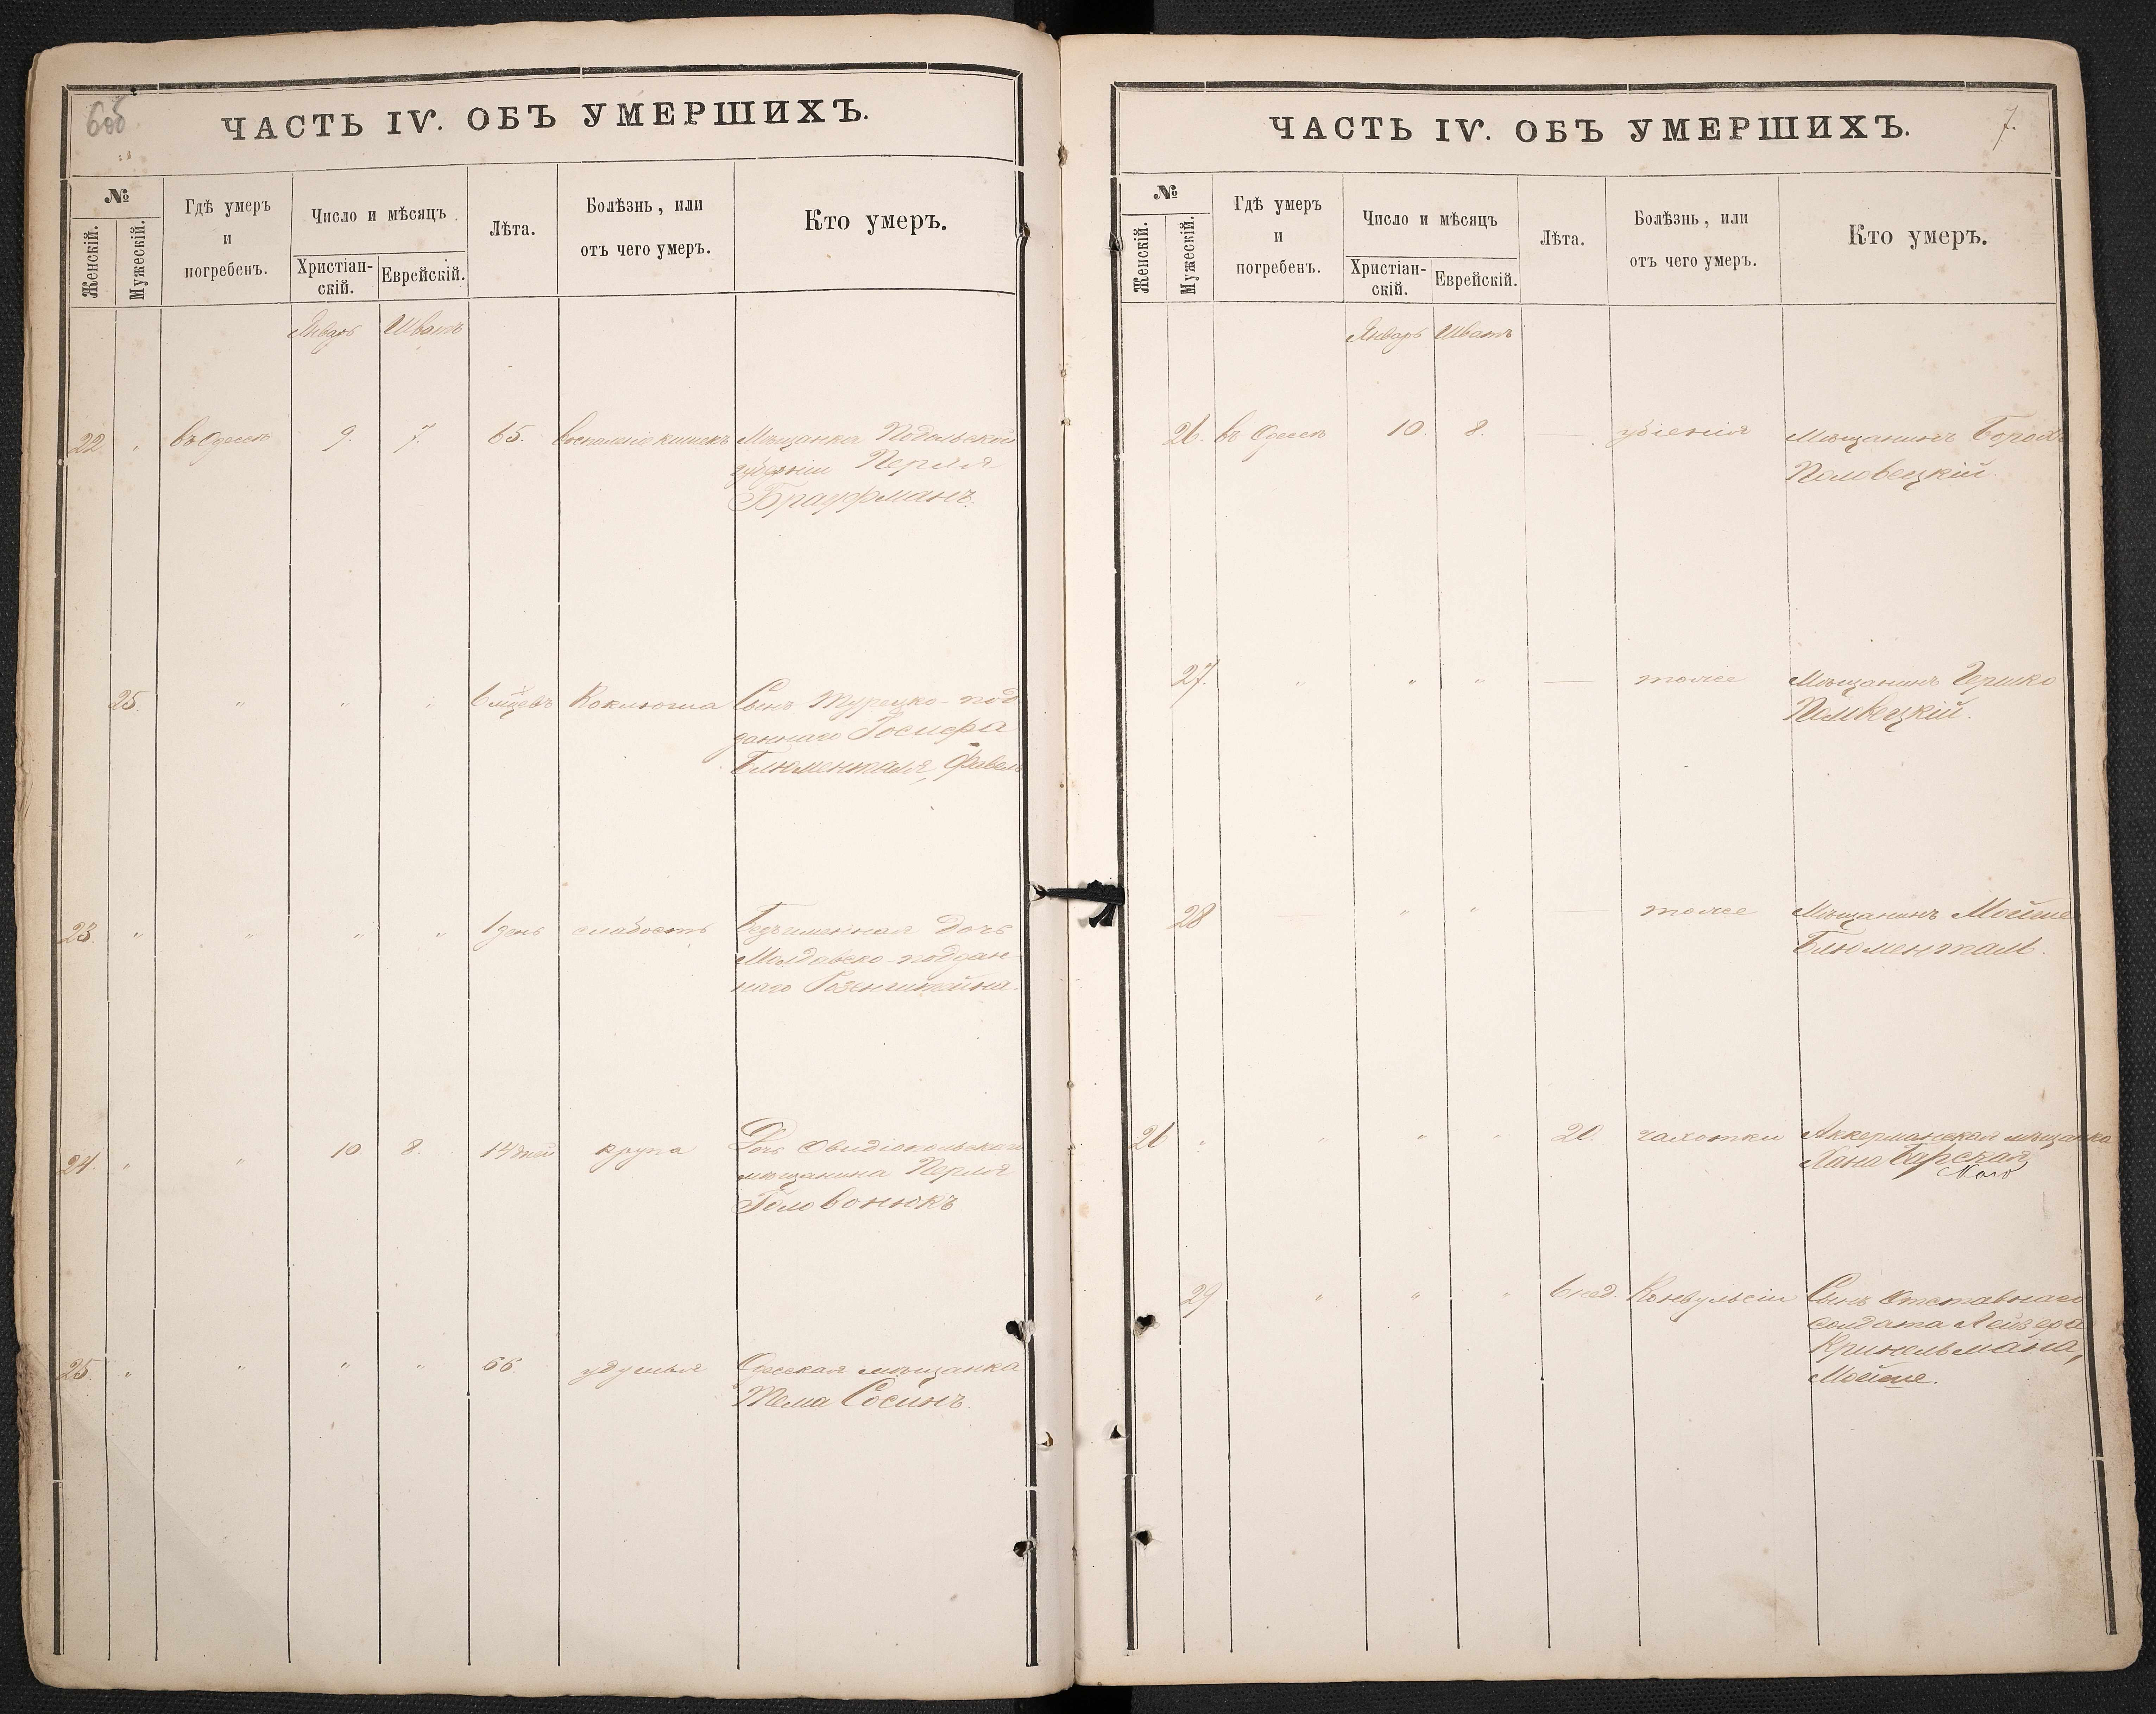 6об
ЧАСТЬ IV. ОБЪ УМЕРШИХЪ.
№
Женскій.
Мужескій.
Гдѣ умеръ
и
погребенъ.
Число и мѣсяцъ
Христіан-
скій.
Еврейскій.
Лѣта.
Болѣзнь, или
отъ чего умеръ.
Кто умеръ.
Январь Шватъ
22 " въ Одессѣ 9. 7. 65. воспаленіе кишекъ Мѣщанка Подольской
губерніи Перля
Брауфманъ.
25. " " " 6 мѣсяцевъ Коклюша Сынъ Турецко-под
даннаго Іосифа
Блюменталя, Фавель
23. " " " " 1 день слабость Безъименная дочь
Молдавско-поддан-
наго Розенштейна.
24. " " 10 8. 14 дней крупа Дочь Овидіопольскаго
мѣщанина Перля
Головонюкъ
25. " " " " 66 удушья Одесская мѣщанка
Тема Сосинъ.
7.
ЧАСТЬ IV. ОБЪ УМЕРШИХЪ.
№
Женскій.
Мужескій.
Гдѣ умеръ
и
погребенъ.
Число и мѣсяцъ
Христіан-
скій.
Еврейскій.
Лѣта.
Болѣзнь, или
отъ чего умеръ.
Кто умеръ.
Январь Шватъ
26. въ Одессѣ 10. 8. — убіенія Мѣщанинъ Борохъ
Половецкій.
27. " " " — тоже Мѣщанинъ Гершко
Половецкій.
28 — " " — тоже Мѣщанинъ Мойше
Блюменталь.
26 " " " " 20. чахотки Аккерманская мѣщанка
Хана Барская
29 " " " 6 нед. Конвульсіи Сынъ Отставнаго
солдата Лейзера
Кринельмана,
Мойше.